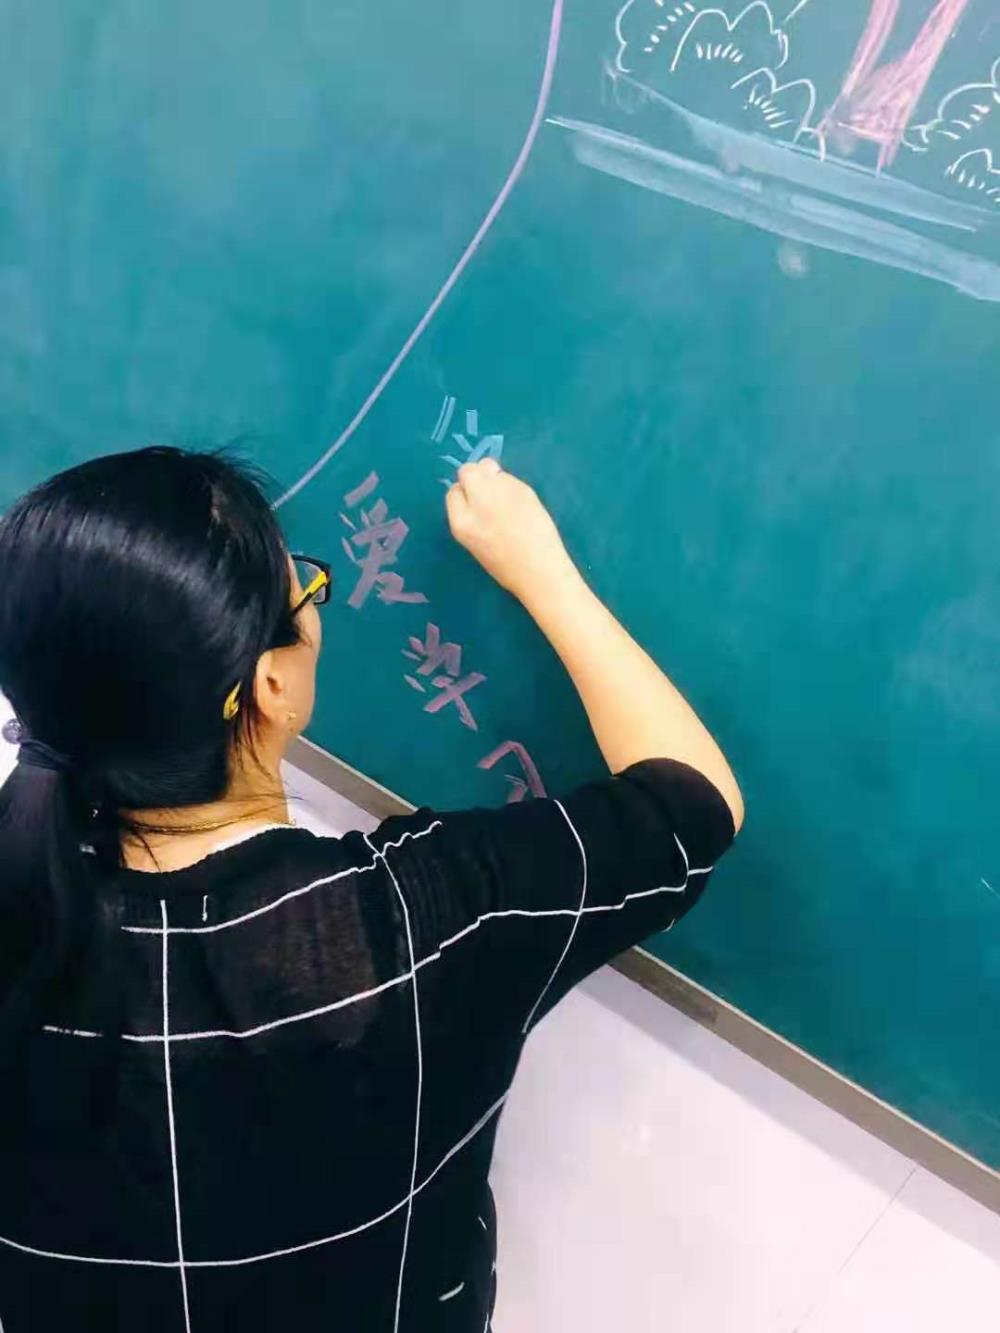 爱学习